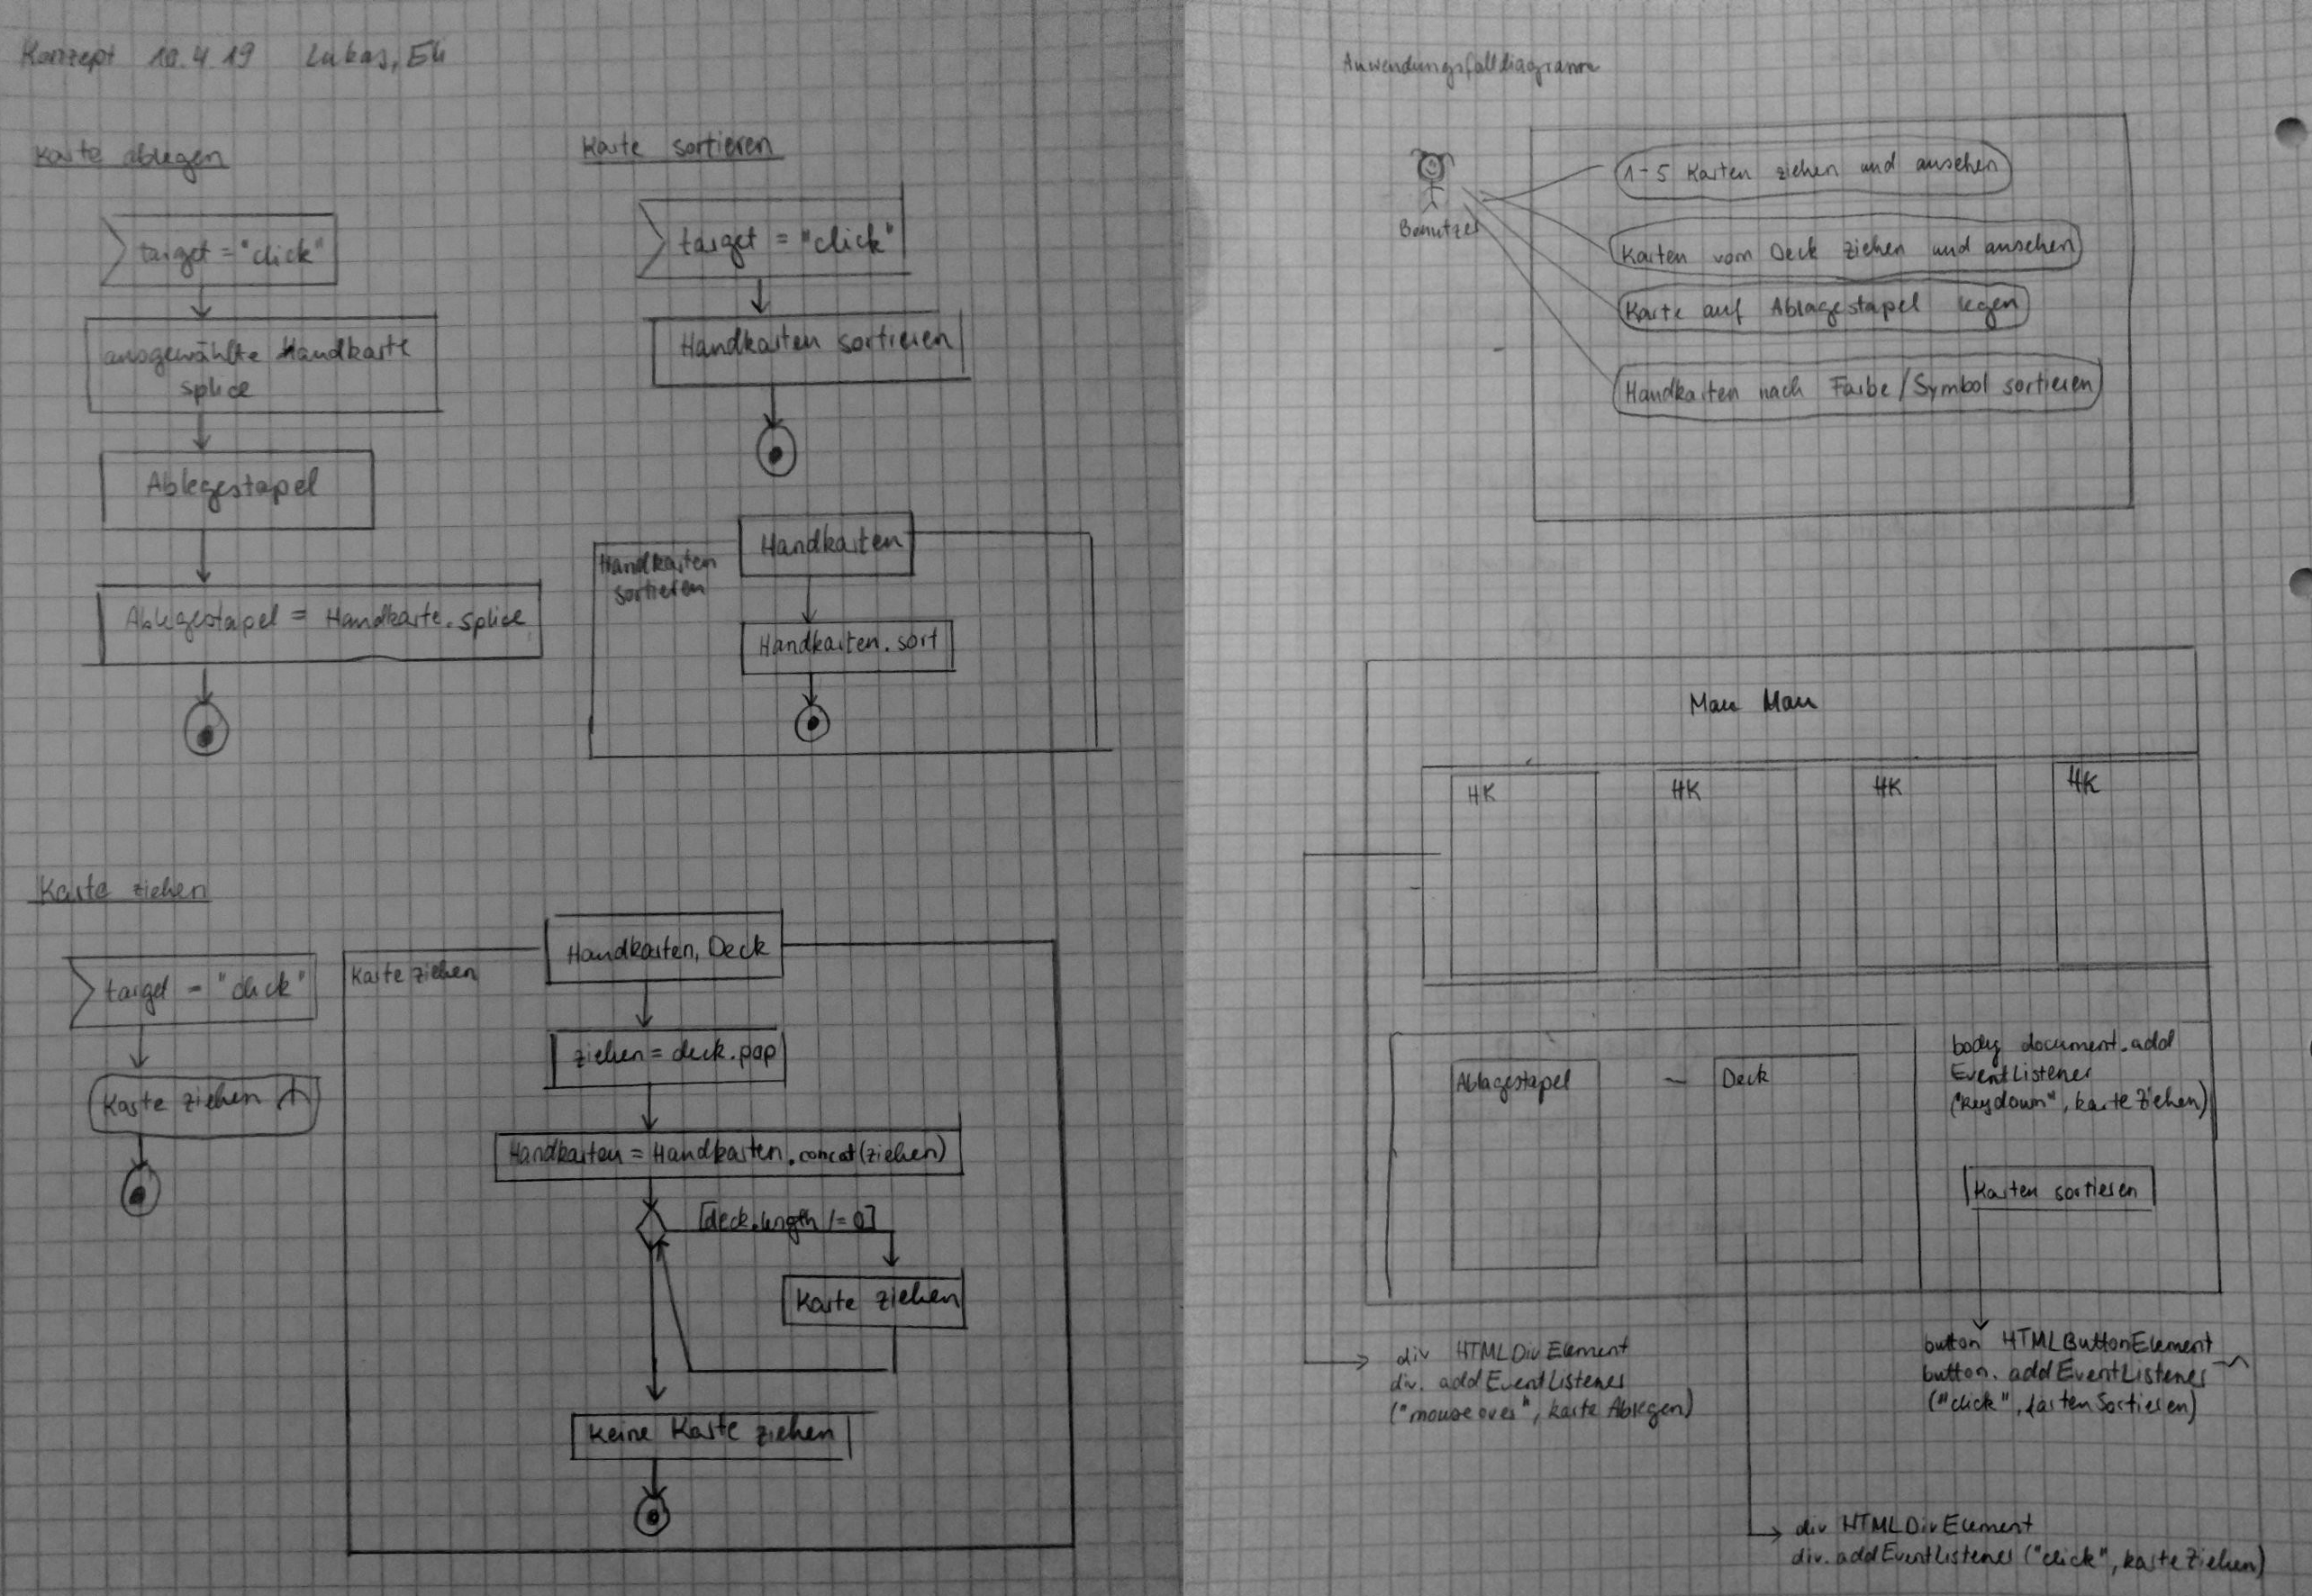 Konzept 10.4.19 Lukas,
Karte ablegen
target = "click"
ausgewählte Handkarte
splice
Ablegestapel
Ablegestapel = Handkarte.splice
Karte sortieren
target = "click"
Handkarten sortieren
Handkarten
sortieren
Handkarten
Handkarten.sort
Karte ziehen
target = "click"
Karte ziehen
Karte ziehen
Handkarten, Deck
ziehen = deck.pop
Handkarten = Handkarten.concat(ziehen)
[deck.length != 0]
Karte ziehen
Keine Karte ziehen
Anwendungsfalldiagramm
Benutzer
1-5 Karten ziehen und ansehen
Karten vom Deck ziehen und ansehen
Karte auf Ablagestapel legen
Handkarten nach Farbe/Symbol sortieren
Mau Mau
HK
HK
HK
HK
Ablagestapel
Deck
body document.add
EventListener
("keydown", karteZiehen)
Karten sortieren
div HTMLDivElement
div. addEventListener
("mouseover", karteAblegen)
button HTMLButtonElement
button. addEventListener
("click", kartenSortieren)
div HTMLDivElement
div. addEventListener ("click", karteZiehen)